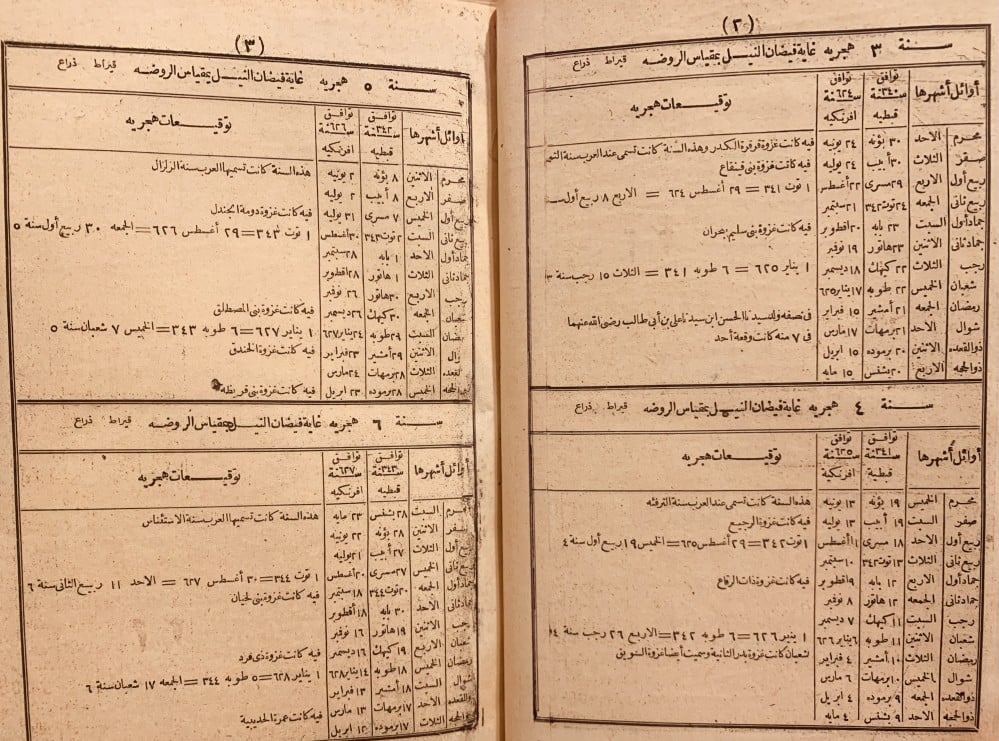 (٢)
سنة ٣ هجريه غاية فيضان النيل بمقياس الروضه قيراط ذراع
أوائل أشهرها توافق سنة ٣٤٠ قبطيه توافق سنة ٦٢٤ افرنكيه توقيعات هجريه
محرم الاحد ٣٠ بؤنه ٢٤ يونيه
صفر الثلاث ٣٠ أبيب ٢٤ يوليه فيه كانت غزوة قرقرة الكدر وهذه السنة كانت تسمى عند العرب سنة
ربيع أول الاربع ٢٩ مسرى ٢٢ أغسطس فيه كانت غزوة بنى قينقاع
ربيع ثانى الجمعه ٢٤ توت ٣٤١ ٢١ سبتمبر ١ توت ٣٤١ = ٢٩ أغسطس ٦٢٤ = الاربع ٨ ربيع أول سنة
جماد أول السبت ٢٣ بابه ٢٠ اقطوبر فيه كانت غزوة بنى سليم بحران
جمادثانى الاثنين ٢٣ هاتور ١٩ نوفبر
رجب الثلاث ٢٢ كيهك ١٨ ديسمبر ١ يناير ٦٢٥ = ٦ طوبه ٣٤١ = الثلاث ١٥ رجب سنة ٣
شعبان الخميس ٢٢ طوبه ١٧ يناير ٦٢٥
رمضان الجمعه ٢١ أمشير ١٥ فبراير فى نصفه ولد سيدنا الحسن ابن سيدنا على بن أبى طالب رضى الله عنهما
شوال الاحد ٢١ برمهات ١٧ مارس فى ٧ منه كانت وقعة أحد
ذوالقعده الاثنين ٢٠ برموده ١٥ ابريل
ذوالحجه الاربع ٢٠ بشنس ١٥ مايه
سنة ٤ هجريه غاية فيضان النيل بمقياس الروضه قيراط ذراع
أوائل أشهرها توافق سنة ٣٤١ قبطية توافق سنة ٦٢٥ افرنكية توقيعات هجريه
محرم الخميس ١٩ بؤنه ١٣ يونيه هذه السنة كانت تسمى عند العرب سنة الترفئه
صفر السبت ١٩ أبيب ١٣ يوليه فيه كانت غزوة الرجيع
ربيع أول الاحد ١٨ مسرى ١١ أغسطس ١ توت ٣٤٢ = ٢٩ أغسطس ٦٢٥ = الخميس ١٩ ربيع أول سنة ٤
ربيع ثانى الثلاث ١٣ توت ٣٤٢ ١٠ سبتمبر
جماد أول الاربع ١٢ بابه ٩ اقطوبر فيه كانت غزوة ذات الرقاع
جمادثانى الجمعه ١٢ هاتور ٨ نوفبر
رجب السبت ١١ كيهك ٧ ديسمبر
شعبان الاثنين ١١ طوبه ٦ يناير ٦٢٦ ١ يناير ٦٢٦ = ٦ طوبه ٣٤٢ = الاربع ٢٦ رجب سنة ٤
رمضان الثلاث ١٠ أمشير ٤ فبراير شعبان كانت غزوة بدر الثانية وسميت أيضا غزوة السويق
شوال الخميس ١٠ برمهات ٦ مارس
ذوالقعده الجمعه ٩ برموده ٤ ابريل
ذوالحجه الاحد ٩ بشنس ٤ مايه
(٣)
سنة ٥ هجريه غاية فيضان النيل بمقياس الروضه قيراط ذراع
أوائل أشهرها توافق سنة ٣٤٢ قبطية توافق سنة ٦٢٦ افرنكيه توقيعات هجريه
محرم الاثنين ٨ بؤنه ٢ يونيه هذه السنة كانت تسميها العرب سنة الزلزال
صفر الاربع ٨ أبيب ٢ يوليه
ربيع أول الخميس ٧ مسرى ٣١ يوليه فيه كانت غزوة دومة الجندل
ربيع ثانى السبت ٢ توت ٣٤٣ ٣٠ أغسطس ١ توت ٣٤٣ = ٢٩ أغسطس ٦٢٦ = الجمعه ٣٠ ربيع أول سنة ٥
جماد أول الاحد ١ بابه ٢٨ سبتمبر
جمادثانى الثلاث ١ هاتور ٢٨ اقطوبر
رجب الاربع ٣٠ هاتور ٢٦ نوفبر
شعبان الجمعه ٣٠ كيهك ٢٦ ديسمبر فيه كانت غزوة بنى المصطلق
رمضان السبت ٢٩ طوبه ٢٤ يناير ٦٢٧ ١ يناير ٦٢٧ = ٦ طوبه ٣٤٣ = الخميس ٧ شعبان سنة ٥
وال الاثنين ٢٩ أمشير ٢٣ فبراير فيه كانت غزوة الخندق
لقعده الثلاث ٢٨ برمهات ٢٤ مارس
لحجه الخميس ٢٨ برموده ٢٣ ابريل فيه كانت غزوة بنى قريظه
سنة ٦ هجريه غاية فيضان النيل بمقياس الروضه قيراط ذراع
أوائل أشهرها توافق سنة ٣٤٣ قبطيه توافق سنة ٦٢٧ افرنكيه توقيعات هجريه
محرم السبت ٢٨ بشنس ٢٣ مايه هذه السنة كانت تسميها العرب سنة الاستئناس
صفر الاثنين ٢٨ بؤنه ٢٢ يونيه
ربيع أول الثلاث ٢٧ أبيب ٢١ يوليه
ربيع ثانى الخميس ٢٧ مسرى ٢٠ أغسطس ١ توت ٣٤٤ = ٣٠ أغسطس ٦٢٧ = الاحد ١١ ربيع الثانى سنة ٦
جماد أول الجمعه ٢٠ توت ٣٤٤ ١٨ سبتمبر فيه كانت غزوة بنى لحيان
جمادثانى الاحد ٢٠ بابه ١٨ أقطوبر
رجب الاثنين ١٩ هاتور ١٦ نوفبر
شعبان الاربع ١٩ كيهك ١٦ ديسمبر فيه كانت غزوة ذى قرد
رمضان الخميس ١٨ طوبه ١٤ يناير ٦٢٨ ١ يناير ٦٢٨ = ٥ طوبه ٣٤٤ = الجمعه ١٧ شعبان سنة ٦
شوال السبت ١٨ أمشير ١٣ فبراير
القعده الاحد ١٧ برمهات ١٣ مارس
والحجه الثلاث ١٧ برموده ١٢ ابريل فيه كانت عمرة الحديبية